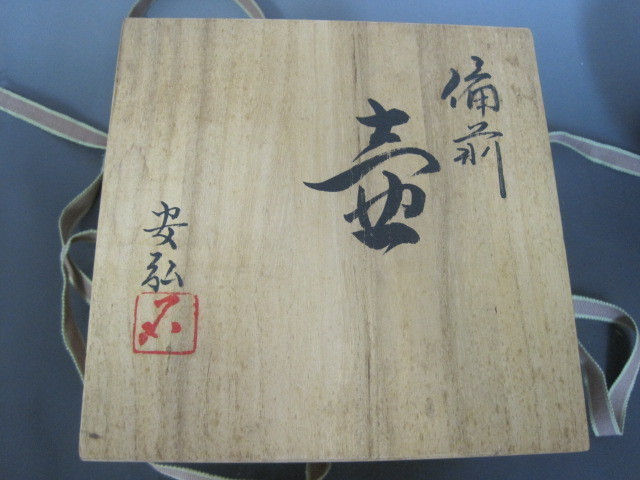 備前
壷
安弘